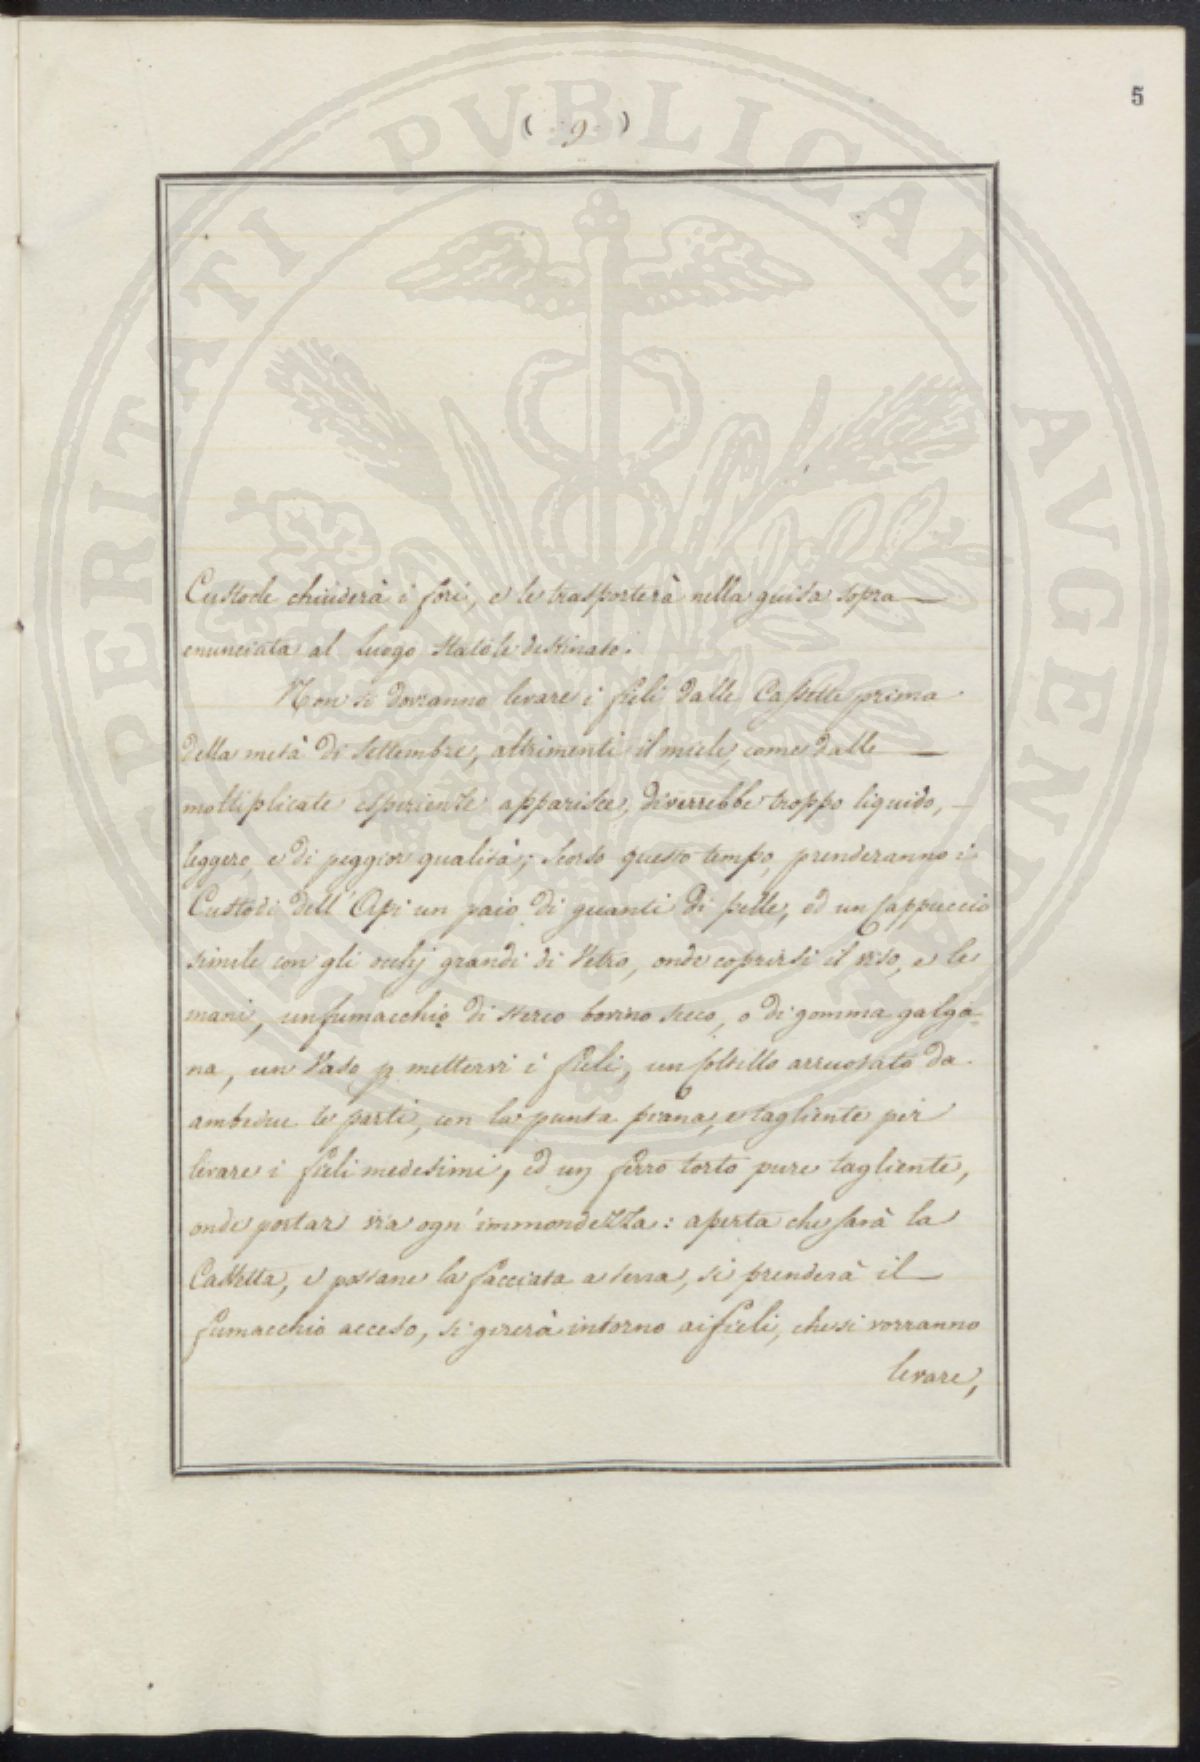 5
( 9 )
Custode chiuderà i fori, e le trasporterà nella guisa sopra
enunciata al luogo stabile destinato.
Non si dovranno levare i fieli dalle Cassette prima
della metà di Settembre, altrimenti il miele, come dalle
moltiplicate esperienze apparisce, diverrebbe troppo liquido,
leggero, e di peggior qualità; scorso questo tempo, prenderanno i
Custodi dell' Api un paio di guanti di pelle, ed un cappuccio
simile con gli occhj grandi di Vetro, onde coprirsi il viso, e le
mani, un fumacchio di sterco bovino secco, o di gomma galga-
na, un Vaso p mettervi i fieli, un coltello arruotato da
ambedue le parti, con la punta piana, e tagliente per
levare i fieli medesimi, ed un ferro torto pure tagliente,
onde portar via ogn' immondezza: aperta che sarà la
Cassetta, e postane la facciata a terra, si prenderà il
fumacchio acceso, si girerà intorno ai fieli, che si vorranno
levare,
PROSPERITATI PVBLICAE AVGENDAE